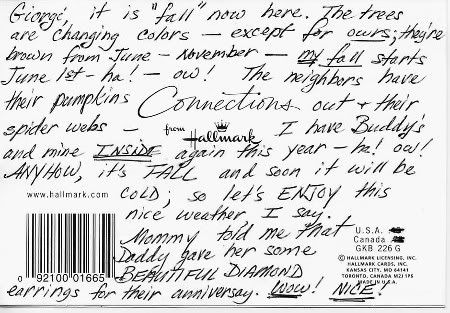 Giorgé, it is "fall" now here. The trees
are changing colors - except for ours; they're
brown from June - November - my fall starts
June 1st - ha! - ow! The neighbors have
their pumpkins Connections out & their
spider webs - from Hallmark I have Buddy's
and mine INSIDE again this year - ha! ow!
ANYHOW, it's FALL and soon it will be
www.hallmark.com COLD; so let's ENJOY this
nice weather I say.
Mommy told me that
Daddy gave her some
BEAUTIFUL DIAMOND
earrings for their anniversay. WOW! NICE!
U.S.A.
Canada
GKB 226 G
© HALLMARK LICENSING, INC.
HALLMARK CARDS, INC.
KANSAS CITY, MO 64141
TORONTO, CANADA M2J 1P5
MADE IN U.S.A.
0 92100 01665